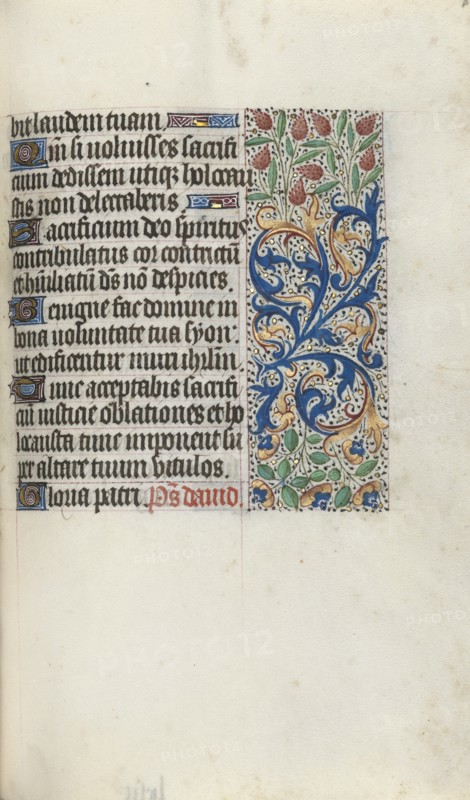 bit laudem tuam
Qm̄ si uoluisses sacrifi
cium dedissem utiqꝫ holocau
stis non delectaberis
Sacrificium deo spiritus
contribulatus cor contrictū
et hūiliatū ds̄ nō despicies.
Benigne fac domine in
bona uoluntate tua syon·
ut edificentur muri ihrlm̄.
Tunc acceptabis sacrifi
ciū iusticie oblationes et ho
locausta tunc imponent su
per altare tuum vitulos.
Gloria patri Ps̄ dauid.
PHOTO12